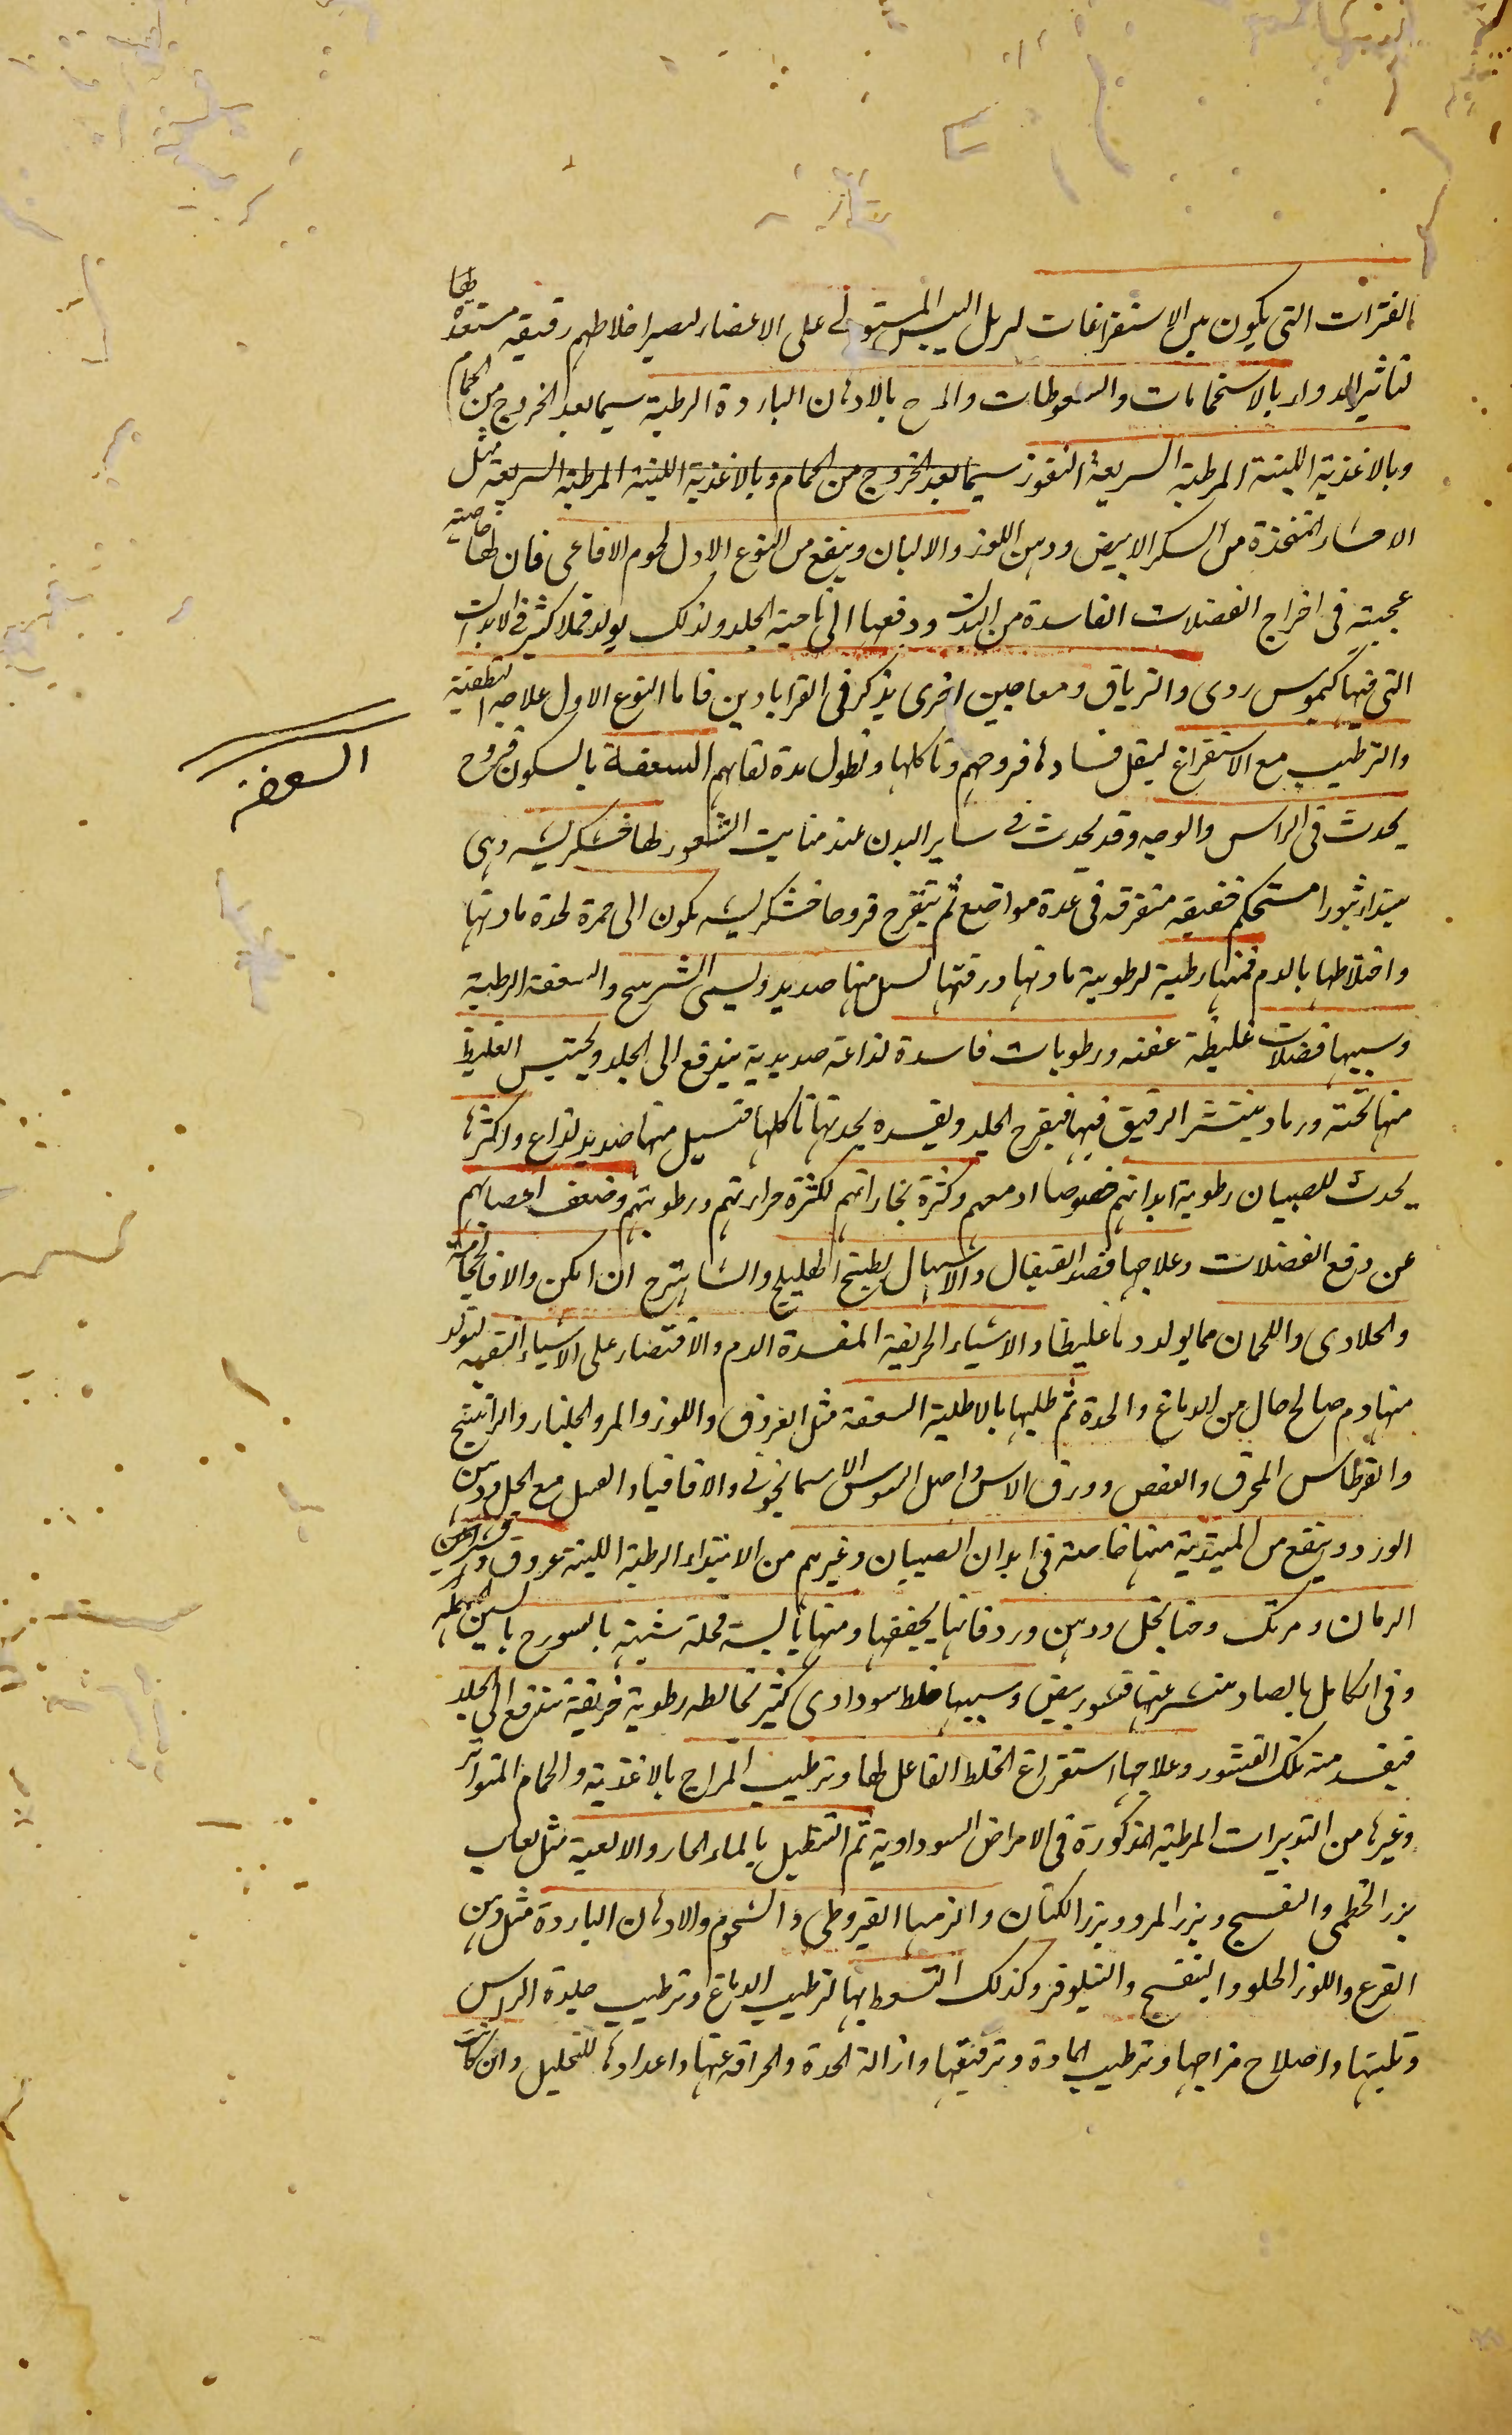 الفترات التى يكون بين الاستفراغات ليزيل اليبس المستولى على الاعضاء ليصير اخلاطهم رقيقه مستعدة طها
لتاثير الدواء بالاستحمامات والسعوطات والمرخ بالادهان الباردة الرطبة سيما بعد الخروج من الحمام
وبالاغذية اللينة المرطبة السريعة النفوذ سيما بعد الخروج من الحمام وبالاغذية اللينة المرطبة السريعة مثل
الاحساء المتخذة من السكر الابيض ودهن اللوز والالبان وينفع من النوع الاول لحوم الافاعى فان لها خاصية
عجيبة فى اخراج الفضلات الفاسدة من البدن ودفعها الى ناحية الجلد ولذلك يولد قملا كثير فى الابدان
التى فيها كيموس ردى والترياق ومعاجين اخرى يذكر فى القرابادين فاما النوع الاول علاجه التطفية
والترطيب مع الاستفراغ ليقل فساد ها قروحهم وتاكلها وتطول مدة بقائهم السعفة بالسكون قروح
يحدث فى الراس والوجه وقد يحدث فى ساير البدن عند منابت الشعور لها خشكريشه وهى
يبتداء بثورا مستحكم خفيفه متفرقه فى عدة مواضع ثم يتقرح قروحا خشكريشه يكون الى حمرة لحدة مادتها
واختلاطها بالدم فمنها رطبة لرطوبة مادتها ورقتها يسيل منها صديد ويسمى الشرينج والسعفة الرطبة
وسببها فضلات غليظة عفنه ورطوبات فاسدة لذاعة صديدية يندفع الى الجلد ويحتبس الغليظ
منها تحته ورماد ينتشر الرقيق فيها فيقرح الجلد ويفسده بحدتها تاكلها فتسيل منها صديد لذاع واكثرها
يحدث للصبيان رطوبة ابدانهم خصوصا ادمغتهم وكثرة بخاراتهم لكثرة حرارتهم ورطوبتهم وضعف اعصابهم
عن دفع الفضلات وعلاجها فصد القيفال والاسهال بطبيخ الهليلج والشاهترج ان امكن والا فالحجامة
والحلاوى واللحمان مما يولد دما غليظا والاشياء الحريفة المفسدة الدم والاقتصار على الاشياء التفهة لتولد
منها دم صالح خال من الدباغ والحدة ثم طليها بالاطلية السعفة مثل العروق واللوز والمر والجلنار والراتينج
والقرطاس المحرق والعفص وورق الاس واصل السوس الاسمانجونى والاقاقيا والعسل مع الخل ودهن
الورد وينفع من المبتدية منها خاصة فى ابدان الصبيان وغيرهم من الابتداء الرطبة اللينة عروق وقشور
الرمان ومرتك وحنا بخل ودهن ورد فانها يجففها ومنها يابسة قحلة شبيهة بالسورح بالسين المهملة
وفى الكامل بالصاد منتشر عنها قشور بيض وسببها خلط سوداوى كثير تخالطه رطوبة حريفة تندفع الى الجلد
فيفسد منه تلك القشور وعلاجها استفراغ الخلط الفاعل لها وترطيب المزاج بالاغذية والحمام المتواتر
وغيرها من التدبيرات المرطبة المذكورة فى الامراض السوداوية ثم التنطيل بالماء الحار والالعبة مثل لعاب
بزر الخطمى والبنفسج وبزر المرو وبزر الكتان والزمها القيروطى والشحوم والادهان الباردة مثل دهن
القرع واللوز الحلو والبنفسج والنيلوفر وكذلك التسعط بها لترطيب الدماغ وترطيب جلدة الراس
وتليينها واصلاح مزاجها وترطيب المادة وترقيقها وازالة الحدة والحرافة عنها واعدادها للتحليل وان كانت
السعفة